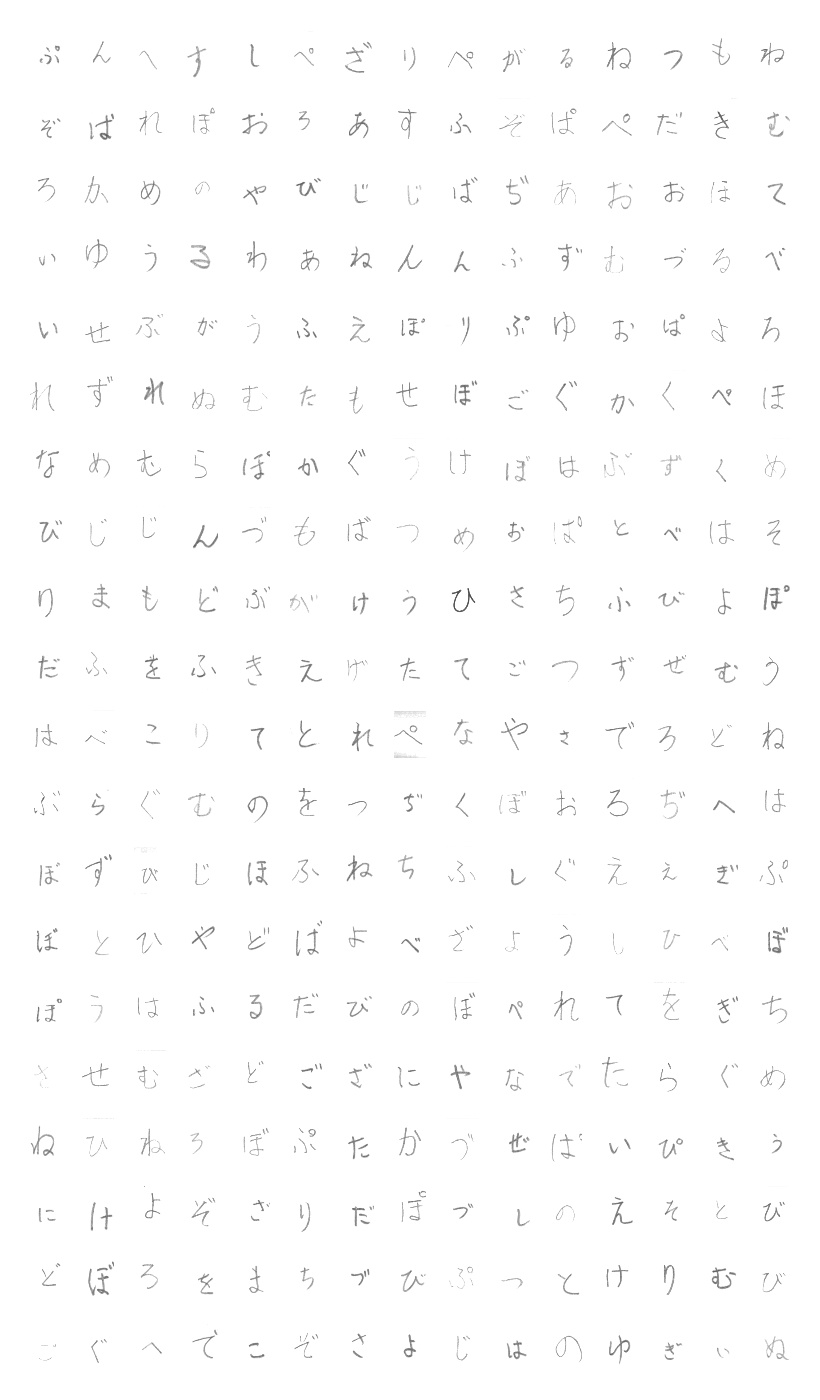 ぷんへすしぺざりぺがるねつもね
ぞばれぽおろあすふぞぱぺだきむ
ろかめのやびじじばぢあおおほて
いゆうるわあねんんふずむづるべ
いせぶがうふえぽりぷゆおぱよろ
れずれぬむたもせぼごぐかくぺほ
なめむらぽかぐうけぼはぶずくめ
びじじんづもばつめおぱとべはそ
りまもどぶがけうひさちふびよぽ
だふをふきえげたてごつずぜむう
はべこりてとれぺなやさでろどね
ぶらぐむのをつぢくぼおろぢへは
ぽずびじほふねちふしぐええぎぷ
ぼとひやどばよべざようしひべぼ
ぽうはふるだびのぼぺれてをぎち
させむざどござにやなでたらぐめ
ねひねろぼぷたかづぜばいぴきう
にけよぞざりだぽづしのえそとび
どぼろをまちづびぷつとけりむび
ごぐへでこぞさよじはのゆぎいぬ